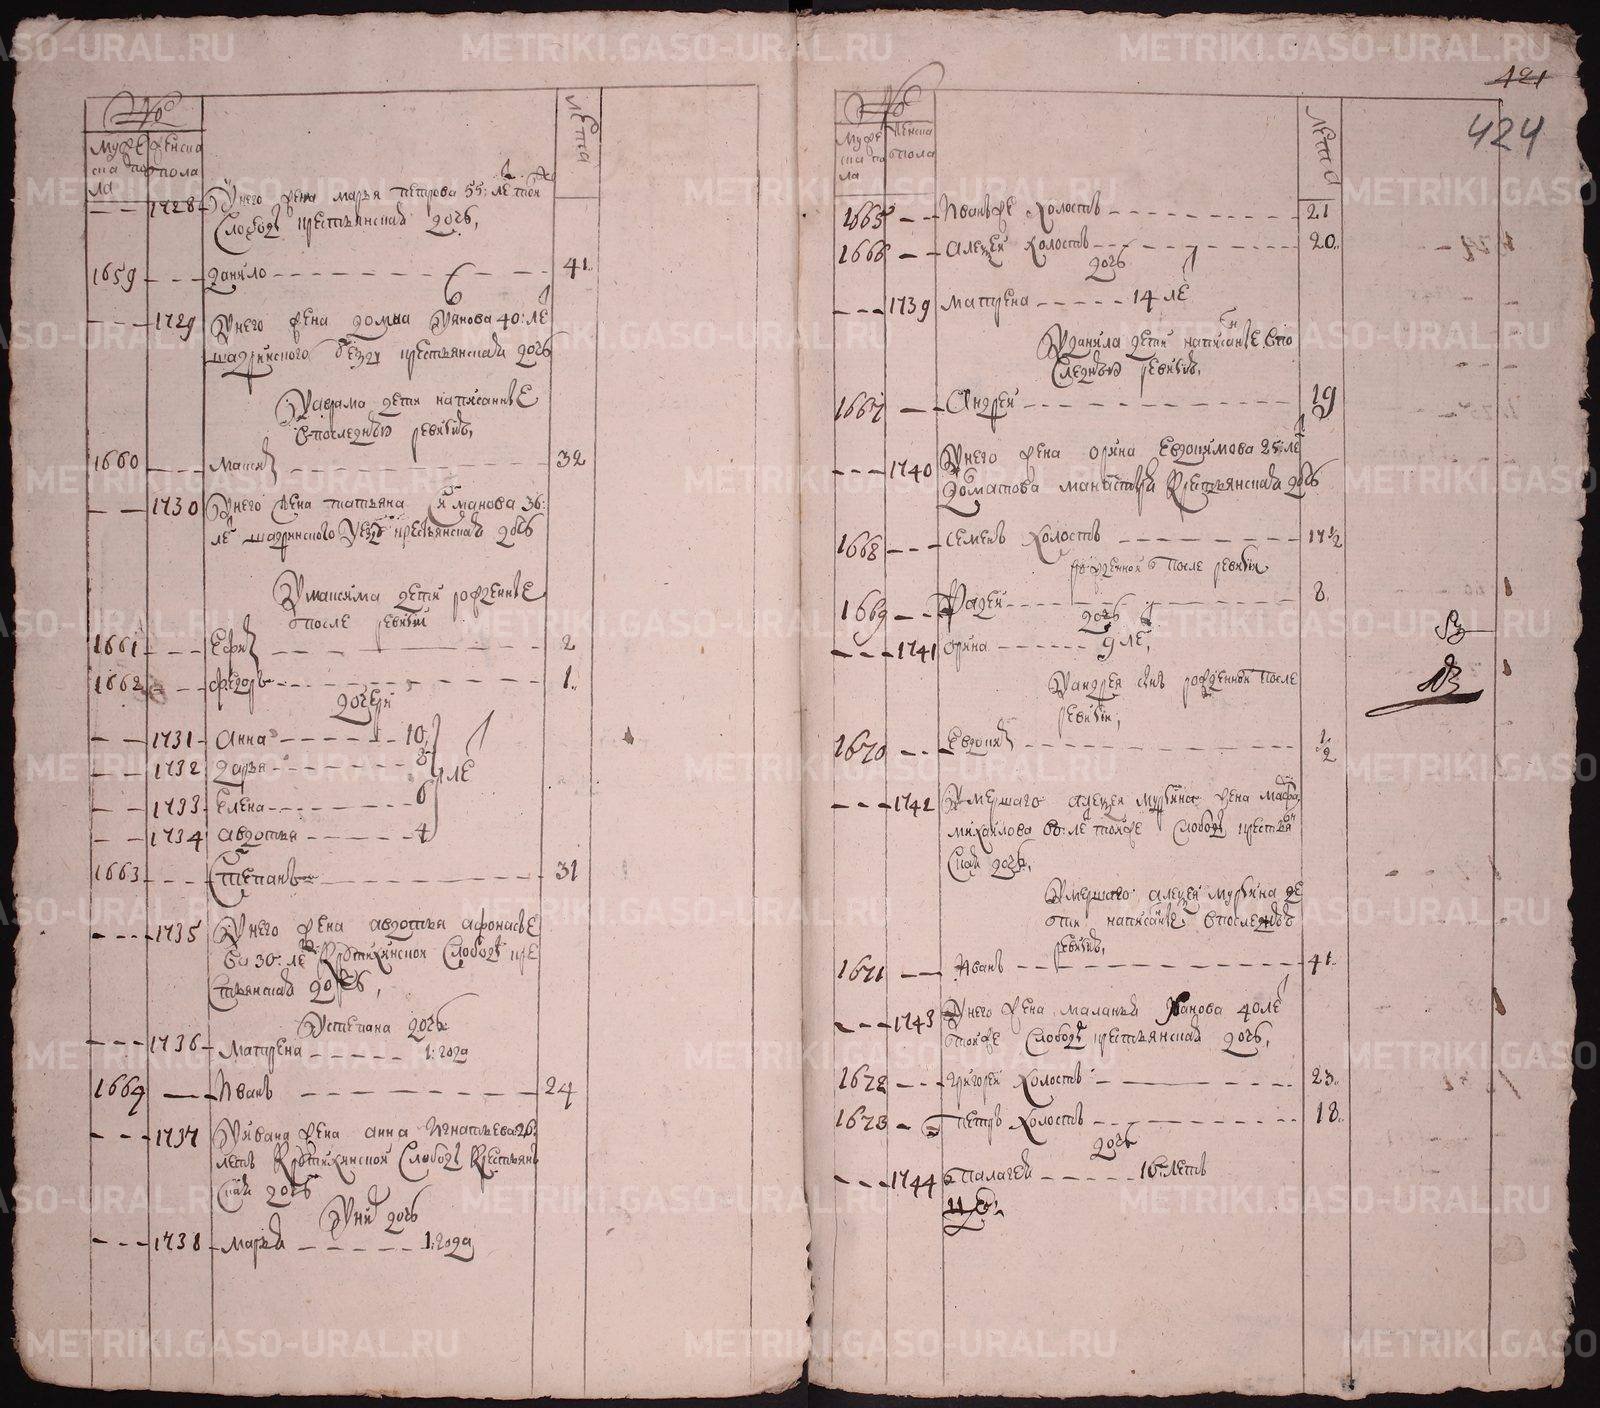 №
Мужеска пола
женска пола
лета
1728 У него жена марья петрова 55: ле тойже
Слободы крестьянская дочь,
1659 данило 41
1729 У него жена домна Уянова 40: ле
шадринского уезду крестьянская дочь
У аврама дети написанные
в последнюю ревизию,
1660 максим 32
1730 У него жена татьяна 36:
ле шадринского Уезду крестьянская дочь
У максима дети рожденные
после ревизии
1661 Ефим 2
1662 федоръ 1
дочери
1731 Анна 10
1732 дарья 8
ле
1733 елена 6
1734 авдотья 4
1663 Степанъ 31
1735 У него жена авдотья афонасье
ва 30: ле Слободы кре
стьянская дочь,
У степана дочь
1736 Матрена 1: года
1664 Иванъ 24
1737 У ивана жена анна Игнатьева 26:
летъ Слободы Крестьян
ская дочь
У них дочь
1738 марья 1: года
421
424
№
Мужеска пола
женска пола
лета
1665 Иванъ же Холостъ 21
1666 алексей Холостъ 20
дочь
1739 матрена 14 ле
У данила дети написанные в по
следнюю ревизию,
1667 Андрей 19
1740 У него жена орина Евдокимова 25: ле
долматова манастыря Крестьянская дочь
1668 семенъ Холостъ 17 1/2
рожденной после ревизии
1669 Фадей 8
дочь
1741 орина 9 ле,
У андрея сынъ рожденной после
ревизии,
1670 Евдоким 1/2
1742 Умершаго алексея мурзина жена
михаилова 60: ле тойже слободы крестьян
ская дочь,
Умершаго алексея мурзина де
ти написанные в последнюю
ревизию,
1671 Иванъ 41
1743 У него жена маланья Иванова 40 ле
тойже Слободы крестьянская дочь,
1672 григорей Холостъ 23
1673 петръ Холостъ 18
дочь
1744 палагея 16: летъ
METRIKI.GASO-URAL.RU